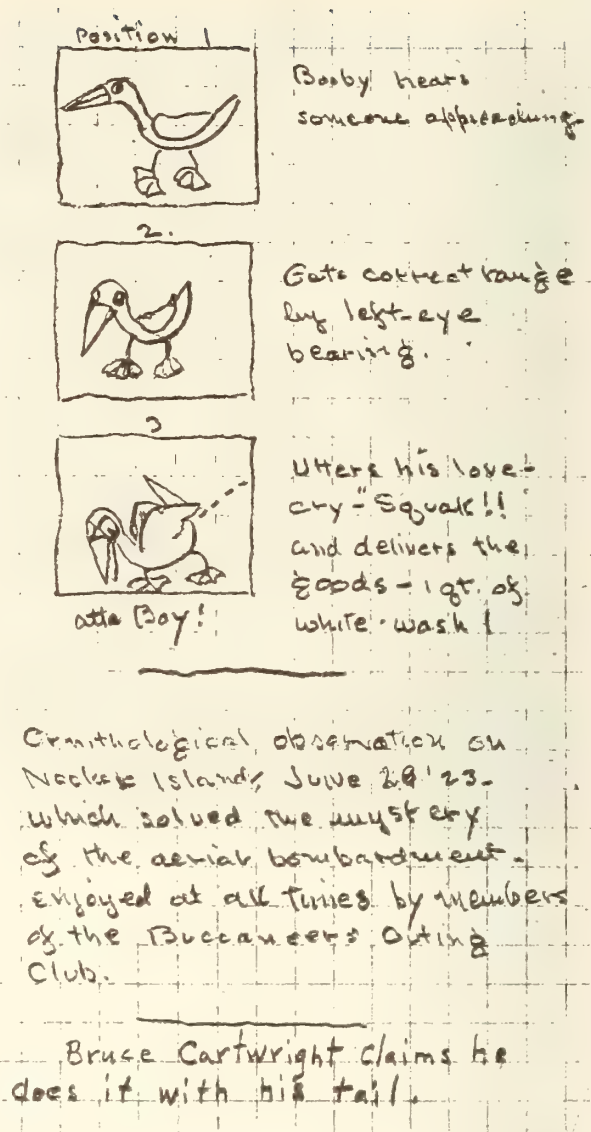 Position 1
Booby hears
someone approaching.
2.
Gets correct range
by left-eye
bearing.
3
Utters his love-
cry - "Squak!!
and delivers the
goods - 1 qt. of
white-wash!
atta Boy!
Ornithological observation on
Necker Island, June 28 '23-
which solved the mystery
of the aerial bombardment-
enjoyed at all times by members
of the Buccaneers Outing
Club.
Bruce Cartwright claims he
does it with his tail.